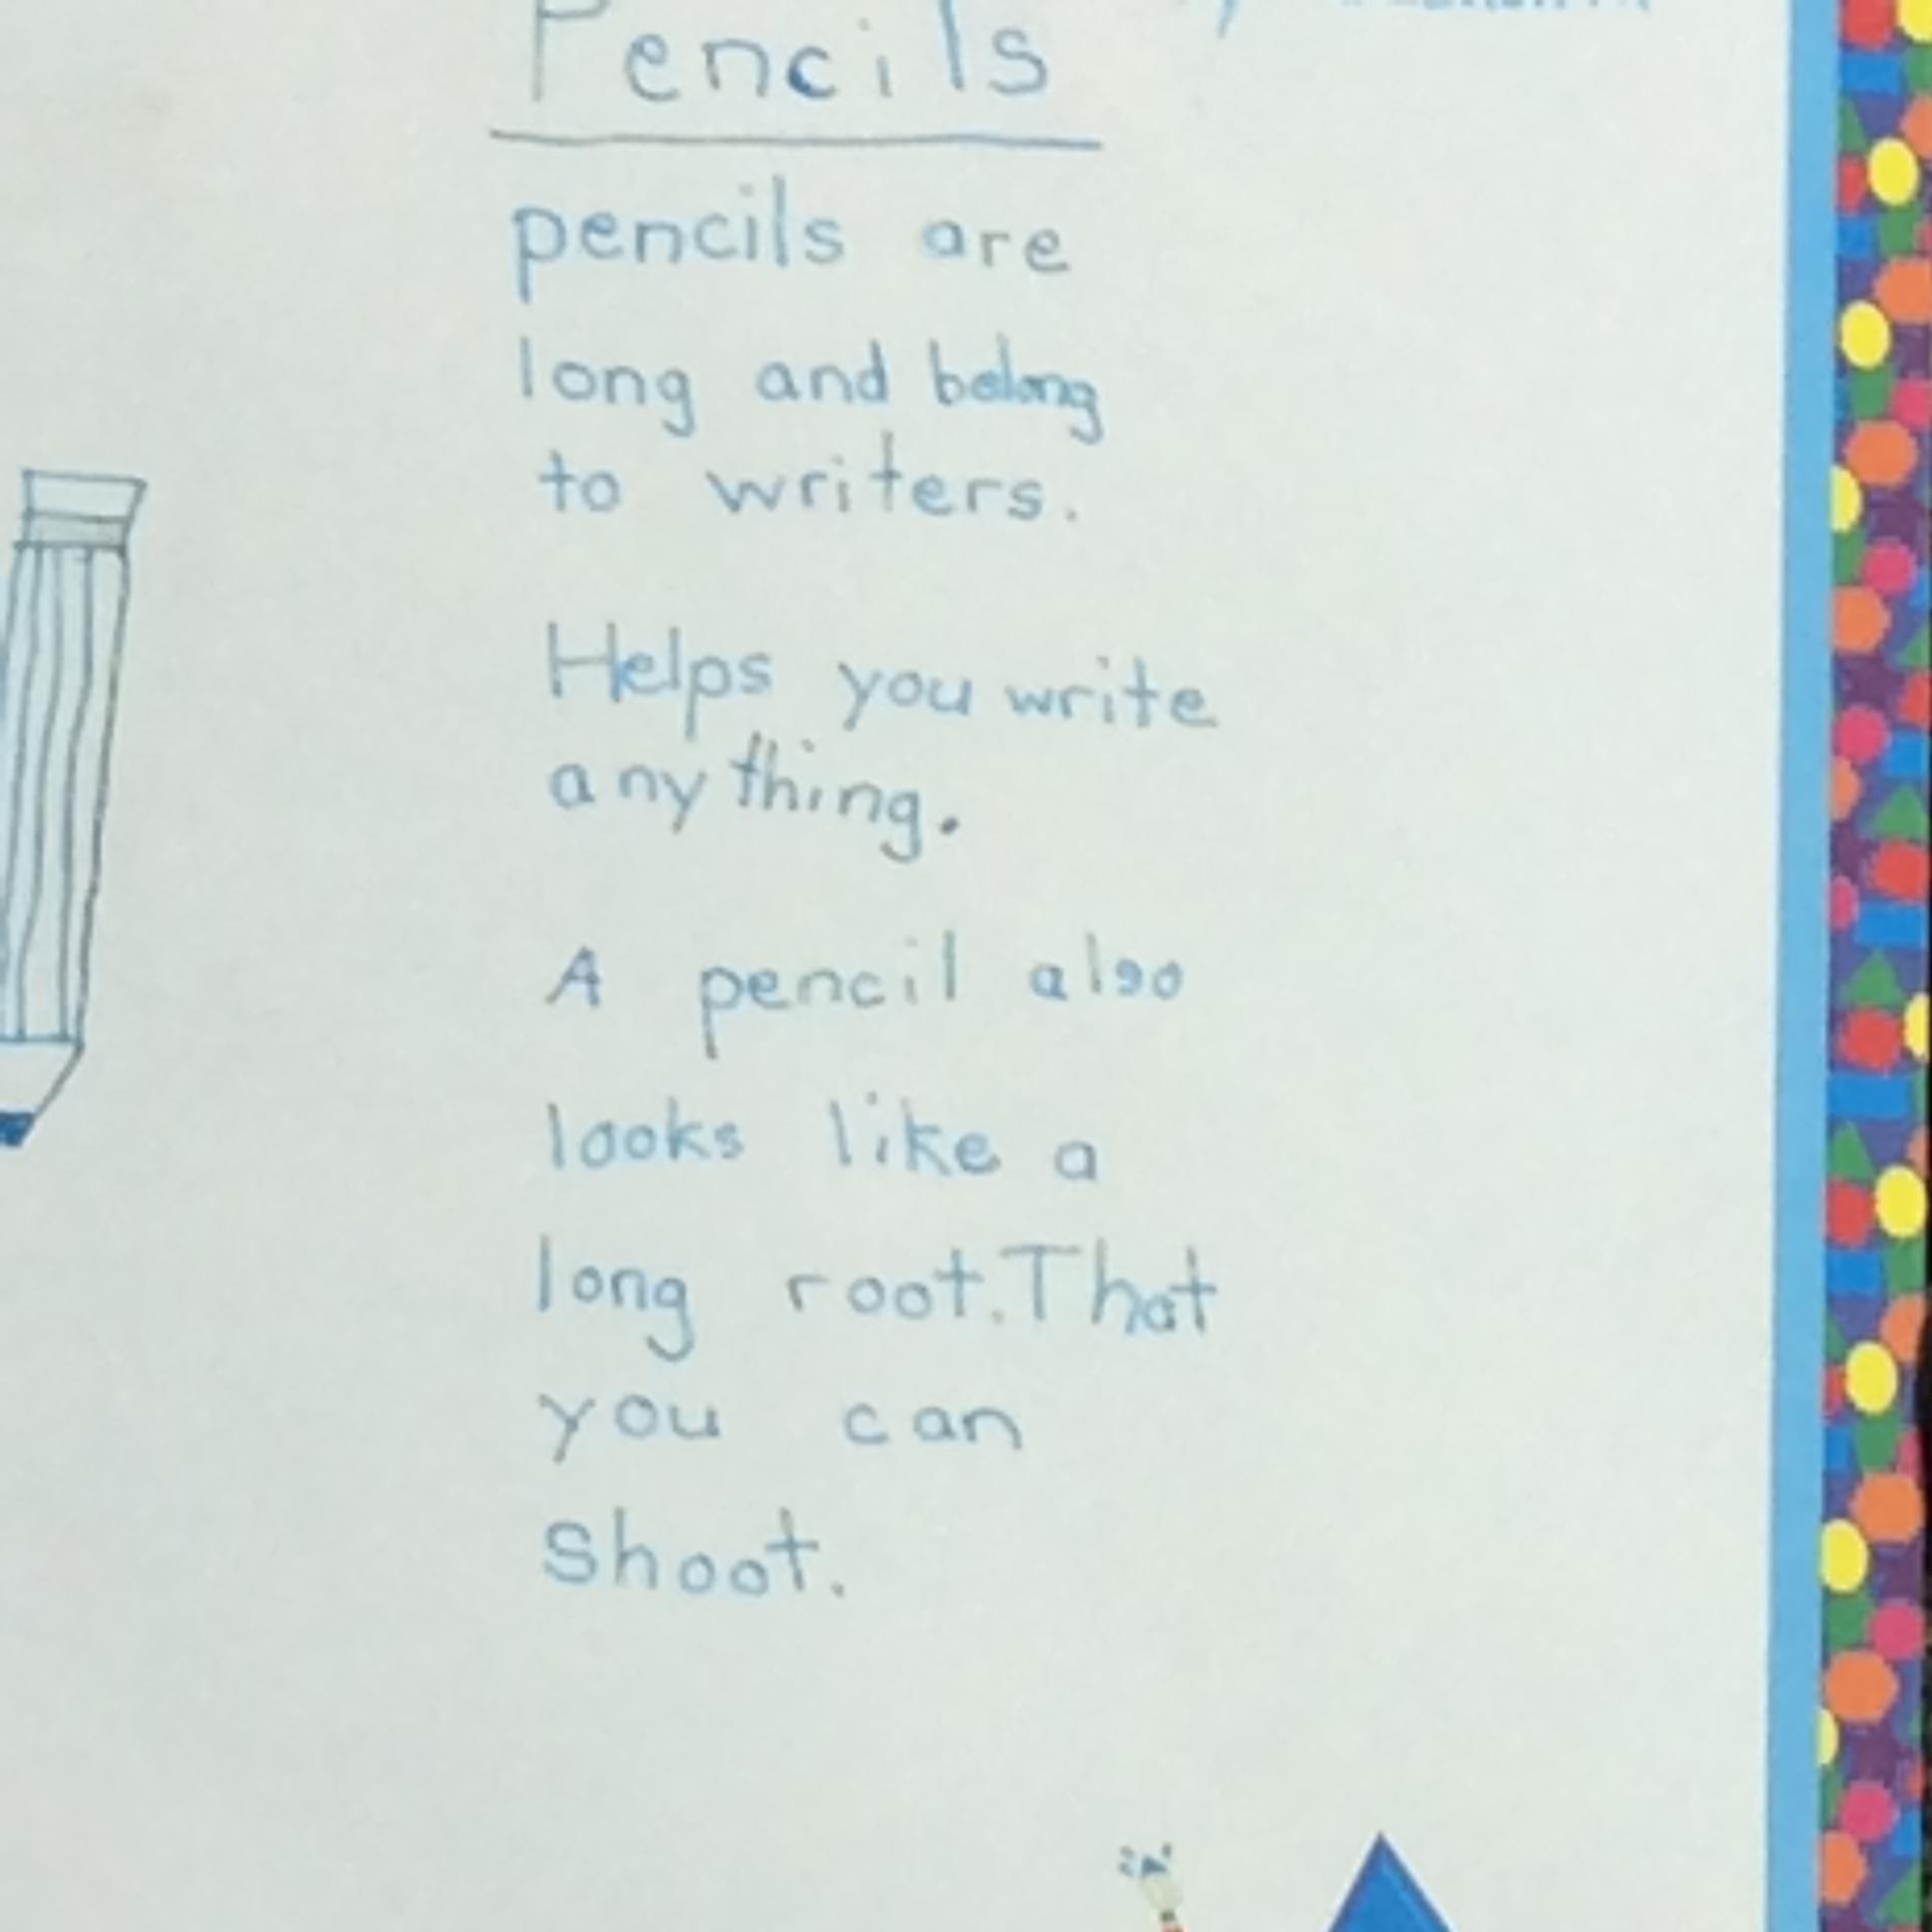 Pencils
pencils are
long and belong
to writers.
Helps you write
anything.
A pencil also
looks like a
long root. That
you can
shoot.